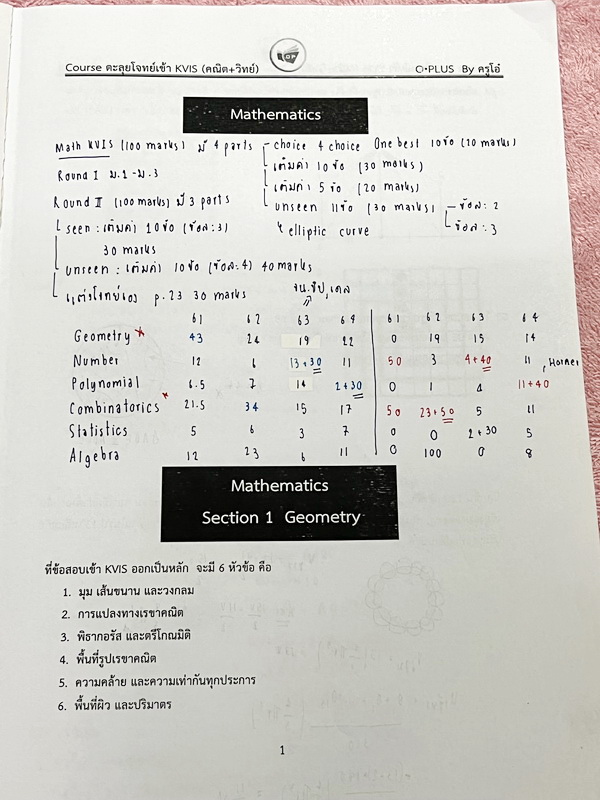 Course ตะลุยโจทย์เข้า KVIS (คณิต+วิทย์)
O·PLUS By ครูโอ๋
Mathematics
Math KVIS (100 marks) มี 4 parts - choice 4 choice One best 10 ข้อ (20 marks)
Round I ม.1-ม.3
เติมคำ 10 ข้อ (30 marks)
เติมคำ 5 ข้อ (20 marks)
Round II (100 marks) มี 3 parts
unseen 11 ข้อ (30 marks) ข้อละ 2
ข้อละ 3
seen : เติมคำ 10 ข้อ (ข้อละ 3)
elliptic curve
30 marks
unseen : เติมคำ 10 ข้อ (ข้อละ 4) 40 marks
แต่งโจทย์เอง p.23 30 marks
61 62 63 64 61 62 63 64
Geometry 43 24 19 22 0 19 15 14
Number 12 6 13+30 11 50 3 4+40 11 , Horner
Polynomial 6.5 7 14 2+30 0 1 4 11+40
Combinatorics 21.5 34 15 17 50 23+50 5 11
Statistics 5 6 3 7 0 0 2+30 5
Algebra 12 23 6 11 0 100 0 8
Mathematics
Section 1 Geometry
ที่ข้อสอบเข้า KVIS ออกเป็นหลัก จะมี 6 หัวข้อ คือ
1. มุม เส้นขนาน และวงกลม
2. การแปลงทางเรขาคณิต
3. พีธากอรัส และตรีโกณมิติ
4. พื้นที่รูปเรขาคณิต
5. ความคล้าย และความเท่ากันทุกประการ
6. พื้นที่ผิว และปริมาตร
1